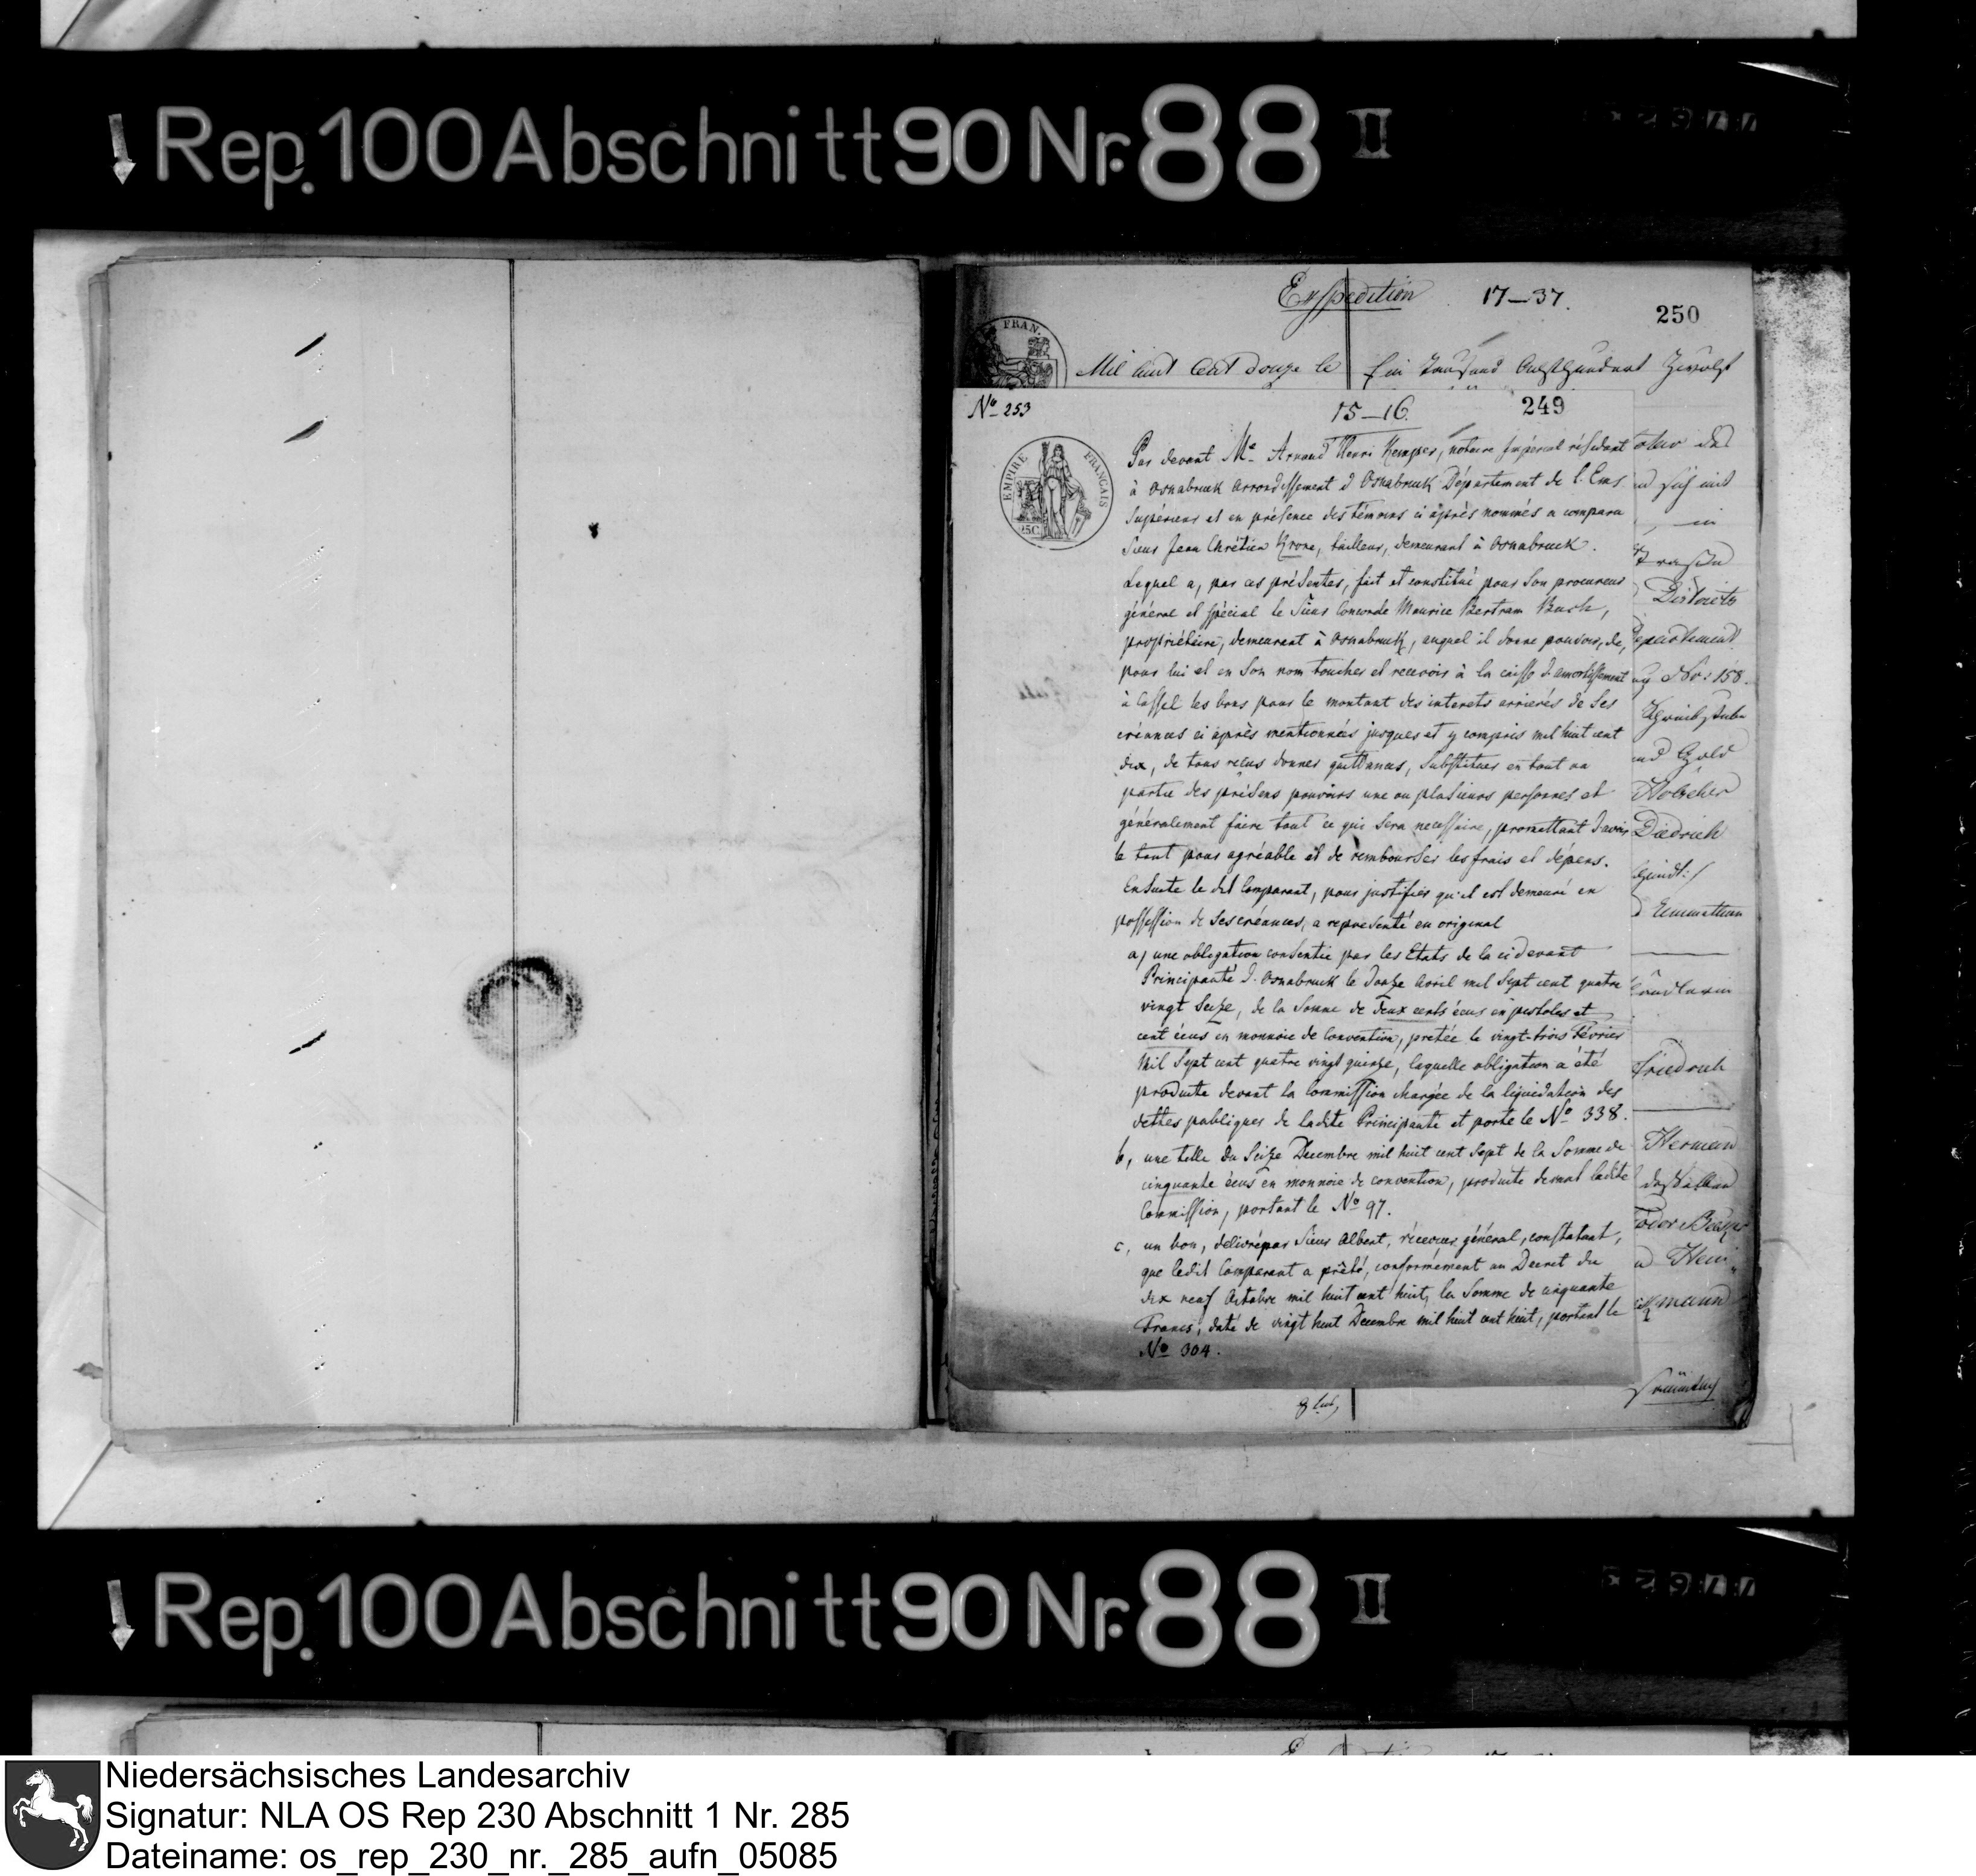 Rep. 100 Abschnitt 90 Nr. 88 II
Expedition 17–37.
250
FRAN.
Mil huit Cent douze le
Ein Tausend Achthundert Zwölf
No 253
15–16.
249
EMPIRE FRANÇAIS
25C
Par devant Me Arnaud Henri Kemper, notaire Impérial résidant
à Osnabruck arrondissement d'Osnabruck Département de l'Ems
Supérieur et en présence des témoins ci après nommés a comparu
Sieur Jean Chrétien Krone, tailleur, demeurant à Osnabruck.
Lequel a, par ces présentes, fait et constitué pour son procureur
général et spécial le Sieur Conrade Maurice Bertram Buch,
propriétaire, demeurant à Osnabruck, auquel il donne pouvoir, de,
pour lui et en Son nom toucher et recevoir à la caisse d'amortissement
à Cassel les bons pour le montant des interets arrierés de Ses
créances ci après mentionnées jusques et y compris mil huit cent
dix, de tous reçus donner quittances, Substituer en tout ou
partie des présens pouvoirs une ou plusieurs personnes et
généralement faire tout ce qui Sera necessaire, promettant d'avoir
le tout pour agréable et de rembourser les frais et dépens.
Ensuite le dit Comparant, pour justifier qu'il est demeuré en
possession de Ses créances, a représenté en original
a) une obligation consentie par les Etats de la cidevant
Principauté d'Osnabruck le douze Avril mil Sept cent quatre
vingt Seize, de la Somme de deux cents écus en pistoles et
cent écus en monnoie de Convention, pretée le vingt-trois Février
Mil Sept cent quatre vingt quinze, laquelle obligation a été
produite devant la Commission chargée de la liquidation des
dettes publiques de ladite Principauté et porte le No 338.
b, une telle du Seize Decembre mil huit cent Sept de la Somme de
cinquante écus en monnoie de convention, produite devant ladite
Commission, portant le No 97.
c, un bon, delivré par Sieur Albert, réceveur général, constatant,
que ledit Comparant a prêté, conformément au Decret du
dix neuf Octobre mil huit cent huit, la Somme de cinquante
Francs, daté de vingt huit Decembre mil huit cent huit, portant le
No 304.
Districts
No: 158.
und Gold
Diedrich
Friedrich
Herman
Rep. 100 Abschnitt 90 Nr. 88 II
Niedersächsisches Landesarchiv
Signatur: NLA OS Rep 230 Abschnitt 1 Nr. 285
Dateiname: os_rep_230_nr._285_aufn_05085